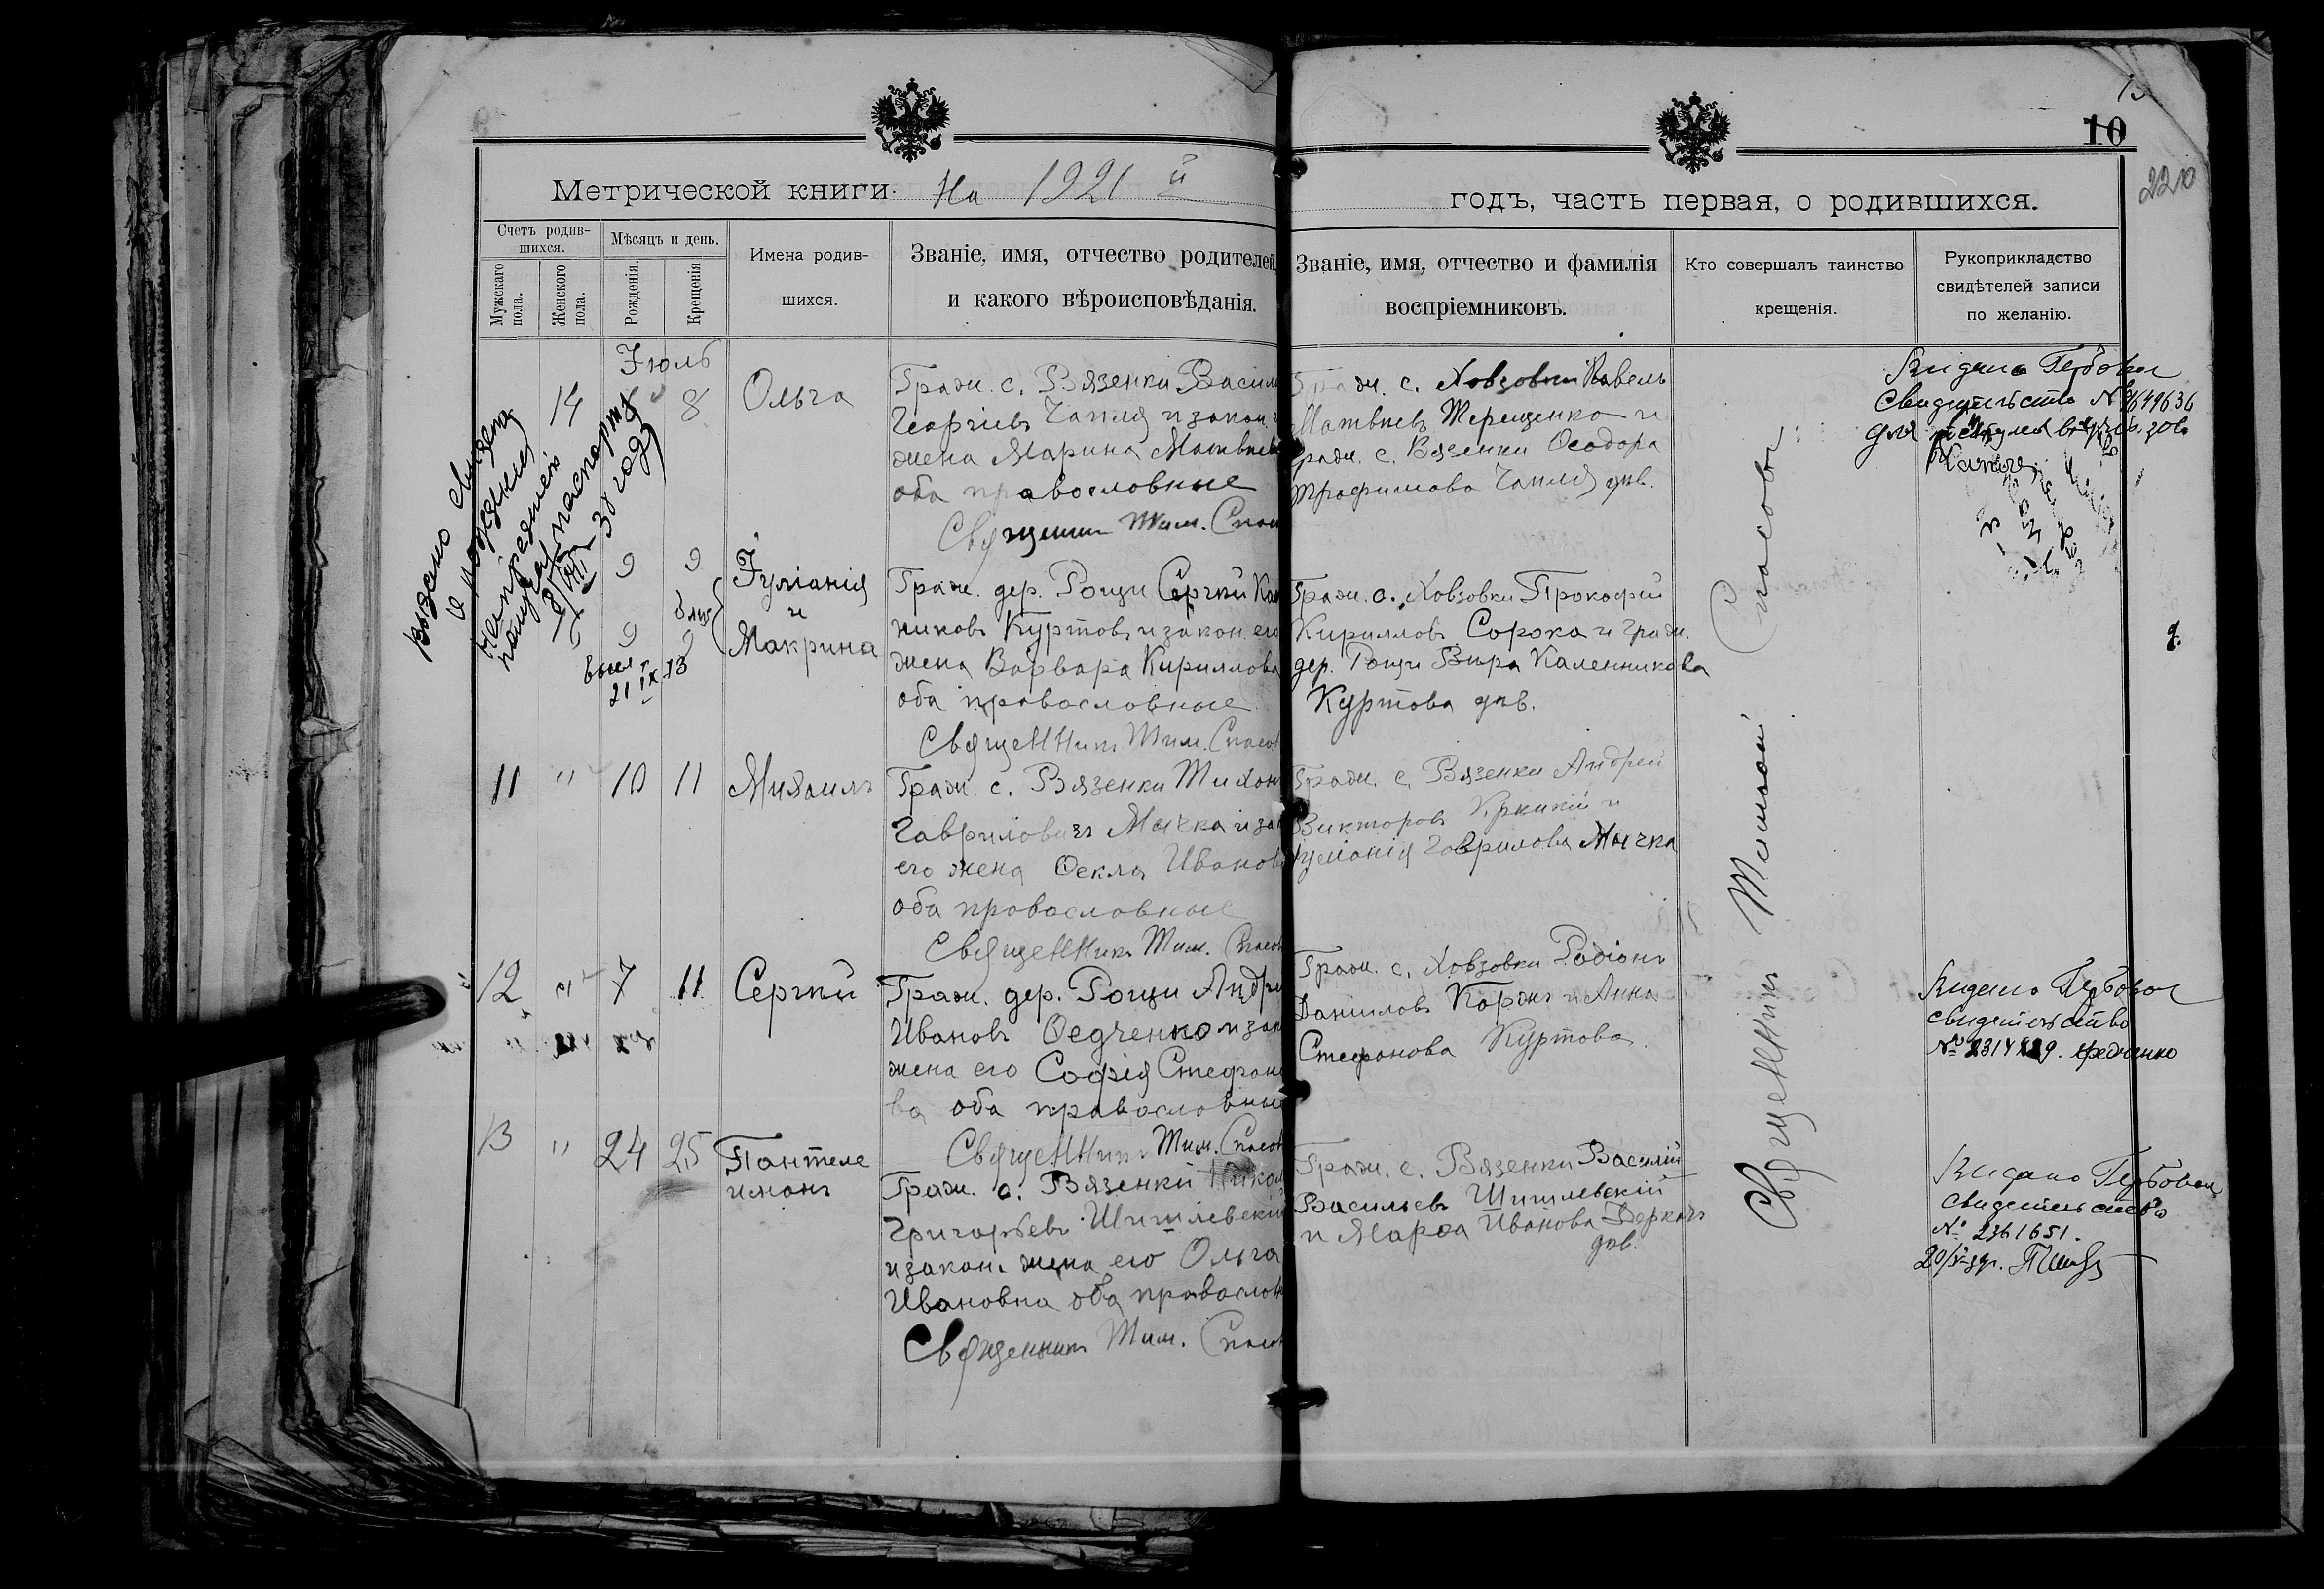 10
220
Метрической книги на 1921 й
годъ, часть первая, о родившихся.
Счетъ родив-
шихся.
Мужскаго
пола.
Женского
пола.
Мѣсяцъ и день.
Рожденія.
Крещенія
Имена родив-
шихся.
Званіе, имя, отчество родителей,
и какого вѣроисповѣданія.
Званіе, имя, отчество и фамилія
воспріемниковъ.
Кто совершалъ таинство
крещенія.
Рукоприкладство
свидѣтелей записи
по желанію.
Іюль
14
8
Ольга
Граж. с. Вязенки Васил
Георгіевъ Чапля и закон.
жена Марина Матвѣев
оба православные
Священникъ Тим. Спасов
Граж. с. Ховзовки Павелъ
Матвѣевъ Терещенко и
граж. с. Вязенки Ѳеодора
Трофимова Чапля дѣв.
Видано Гербовое
Свидетельство №
для
Чапля
Выдано
о рождении
паспорта
9 9
9 9
близ
Іуліанія
и
Макрина
21 IX
Граж. дер. Рощи Сергѣй Кал
никовъ Куртовъ и закон. его
жена Варвара Кириллова
оба православные
Священникъ Тим. Спасов
Граж. с. Ховзовки Прокофій
Кирилловъ Сорока и граж.
дер. Рощи Вѣра Каленникова
Куртова дѣв.
11 " 10 11
Михаилъ
Граж. с. Вязенки Тихон
Гавриловичъ Мычка и зак
его жена Ѳекла Иванов
оба православные
Священникъ Тим. Спасов
Граж. с. Вязенки Андрей
Викторовъ
Іуліанія Гаврилова Мычка
12 " 7 11
Сергѣй
Граж. дер. Рощи Андре
Ивановъ Ѳедченко и зак
жена его Софія Стефано
ва оба православные
Священникъ Тим. Спасов
Граж. с. Ховзовки Родіонъ
Даниловъ Коржъ и Анна
Стефанова Куртова.
Видано Гербовое
свидетельство
Федченко
13 " 24 25
Пантеле
имонъ
Граж. с. Вязенки Никол
Григорьевъ Шишлевскій
и закон. жена его Ольга
Ивановна оба православ
Священникъ Тим. Спасов
Граж. с. Вязенки Василій
Васильевъ Шишлевскій
и Марѳа Иванова Деркачъ
дѣв.
Видано Гербовое
свидетельство
№ 2361651.
Священникъ Тимоѳей Спасовъ